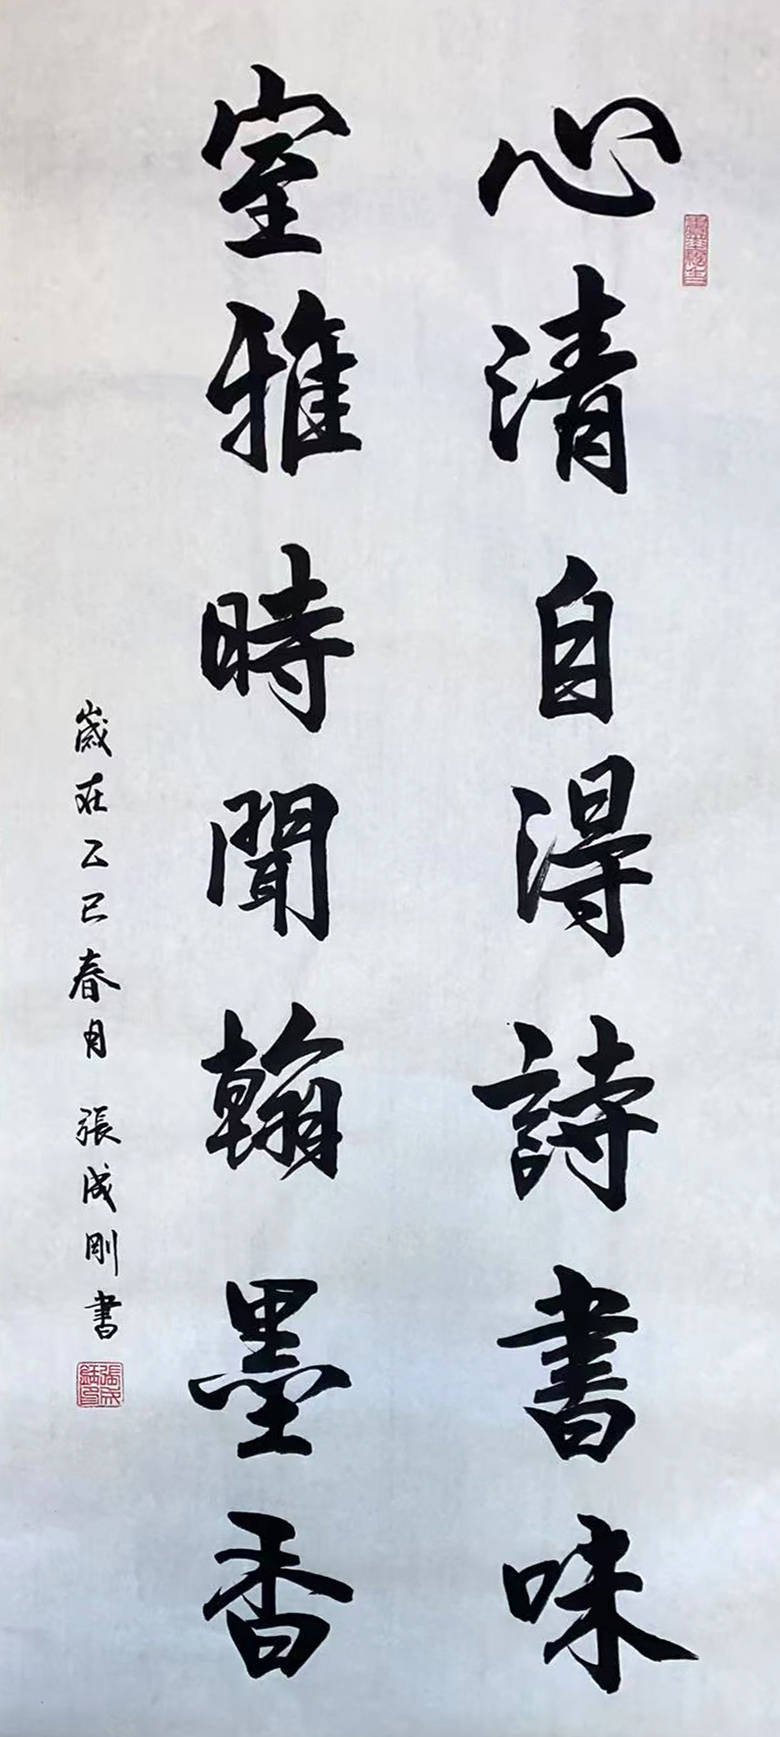 心清自得詩書味
室雅時聞翰墨香
歲在乙巳春月 張成剛書